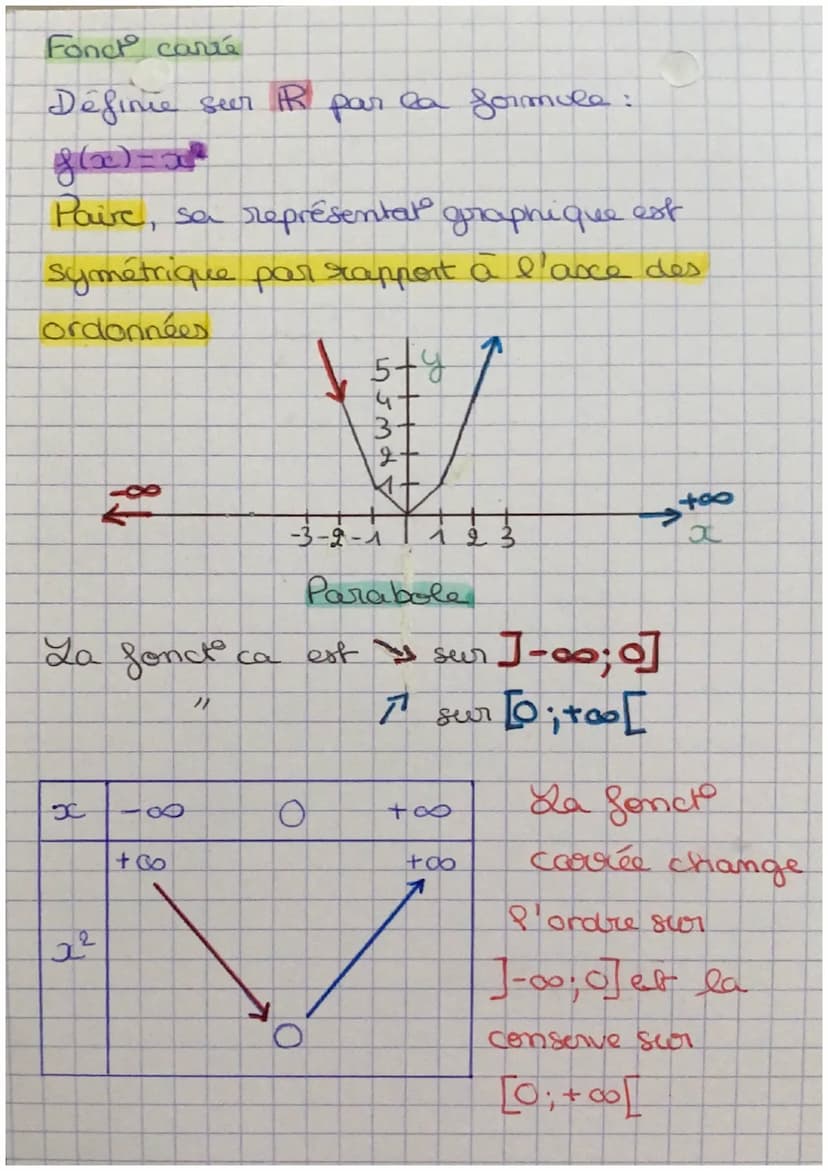 Fonct° carré
Définie sur ℝ par la formule :
f(x) = x²
Paire, sa représentat° graphique est
symétrique par rapport à l'axe des
ordonnées
5 y
4
3
2
1
-∞ +∞
-3 -2 -1 1 2 3 x
Parabole
La fonct° ca est ↘ sur ]-∞; 0]
" ↗ sur [0 ; +∞[
x -∞ 0 +∞
+∞ +∞
x²
0
La fonct°
carrée change
l'ordre sur
]-∞; 0] et la
conserve sur
[0 ; +∞[